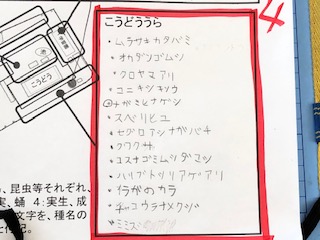 4
こうどううら
・ムラサキカタバミ
・オカダンゴムシ
・クロヤマアリ
・コニシキソウ
・ナガミヒナゲシ
・スベリヒユ
・セグロアシナガバチ
・クワクサ
・コスナゴミムシダマシ
・ハリブトシリアゲアリ
・イラガのカラ
・チャコウラナメクジ
・ミミズ
こうどう
昆虫等それぞれ、
実、蛹 4:実生、成
文字を、種名の